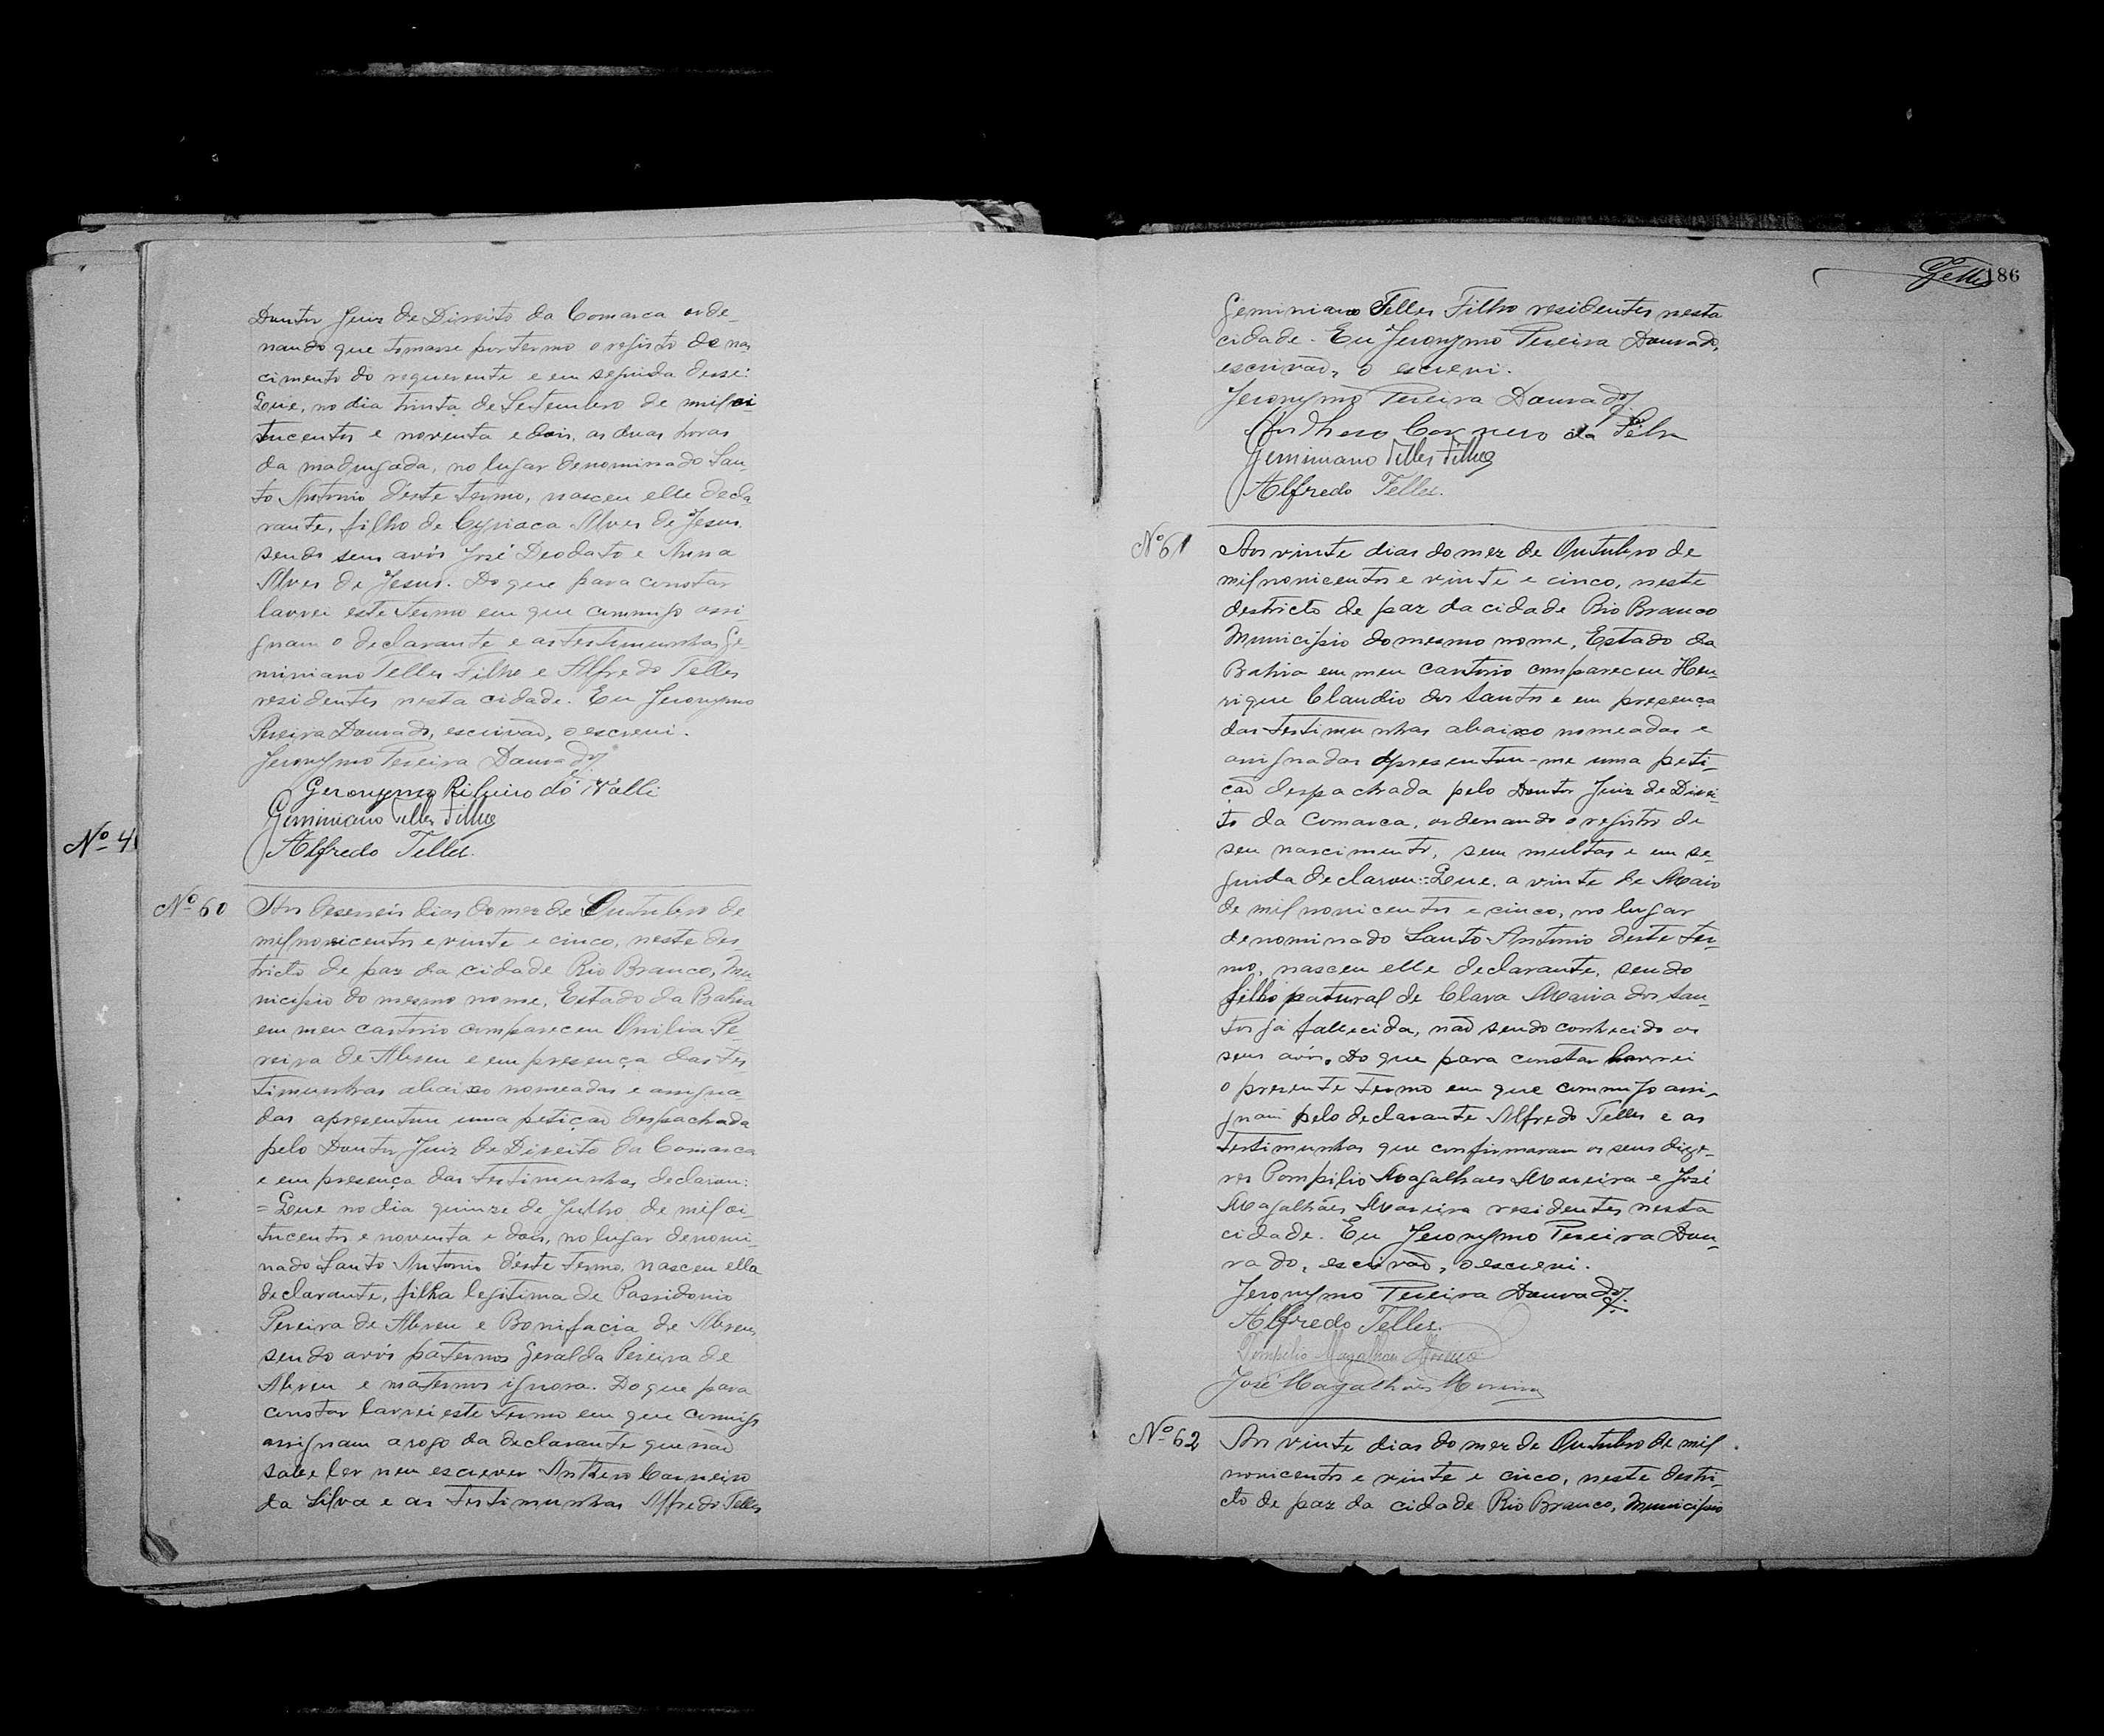 Doutor Juiz de Direito da Comarca orde-
nando que tomasse por termo o registo de nas
cimento do requerente e em seguida disse:
Que, no dia trinta de Setembro de mil oi
tucentos e noventa e dois, as duas horas
da madrugada, no lugar denominado San-
to Antonio d'este termo, nasceu elle decla
rante, filho de Cyriaca Alves de Jesus.
sendo seus avós José Deodato e Anna
Alves de Jesus. Do que para constar
lavrei este termo em que commigo assi
gnam o declarante e as testimunhas Ge-
miniano Telles Filho e Alfredo Telles
residentes nesta cidade. Eu Jeronymo
Pereira Dourado, escrivão, o escrevi.
Jeronymo Pereira Dourado
Geronymo Ribeiro do Valli
Geminiano Telles Filho
Alfredo Telles.
Nº 4
Nº 60
Aos deseseis dias do mez de Outubro de
mil nonicentos e vinte e cinco, neste des
tricto de paz da cidade Rio Branco, Mu
nicipio do mesmo nome, Estado da Bahia
em meu cartorio compareceu Onilia Pe-
reira de Abreu e em presença das tes
timunhas abaixo nomeadas e assigna-
das apresentou uma petição despachada
pelo Doutor Juiz de Direito da Comarca
e em presença das testimunhas declarou:
= Que no dia quinze de Julho de mil oi-
tucentos e noventa e dois, no lugar denomi-
nado Santo Antonio d'este termo, nasceu ella
declarante, filha legitima de Possidonio
Pereira de Abreu e Bonifacia de Abreu,
sendo avós paternos Geralda Pereira de
Abreu e maternos ignora. Do que para
constar lavrei este termo em que commigo
assignam a rogo da declarante que não
sabe ler nem escrever Anthero Carneiro
da Silva e as testimunhas Alfredo Telles
Telles 186
Geminiano Telles Filho residentes nesta
cidade. Eu Jeronymo Pereira Dourado,
escrivão, o escrevi.
Jeronymo Pereira Dourado
Anthero Carneiro da Silva
Geminiano Telles Filho
Alfredo Telles.
Nº 61
Aos vinte dias do mez de Outubro de
mil nonicentos e vinte e cinco, neste
destricto de paz da cidade Rio Branco
Municipio do mesmo nome, Estado da
Bahia em meu cartorio compareceu Hen-
rique Claudio dos Santos e em presença
das testimunhas abaixo nomeadas e
assignadas apresentou-me uma peti-
ção despachada pelo Doutor Juiz de Direi-
to da Comarca, ordenando o registro de
seu nascimento, sem multas e em se-
guida declarou: Que, a vinte de Maio
de mil nonicentos e cinco, no lugar
denominado Santo Antonio deste ter-
mo, nasceu elle declarante, sendo
filho natural de Clara Maria dos San-
tos já fallecida, não sendo conhecido os
seus avós. Do que para constar lavrei
o presente termo em que commigo assi-
gnam pelo declarante Alfredo Telles e as
testimunhas que confirmaram os seus dize-
res Pompilio Magalhaes Moreira e José
Magalhães Moreira residentes nesta
cidade. Eu Jeronymo Pereira Dou-
rado, escrivão, o escrevi.
Jeronymo Pereira Dourado
Alfredo Telles.
Pompilio Magalhães Moreira
José Magalhães Moreira
Nº 62
Aos vinte dias do mez de Outubro de mil
nonicentos e vinte e cinco, neste destri-
cto de paz da cidade Rio Branco, Municipio